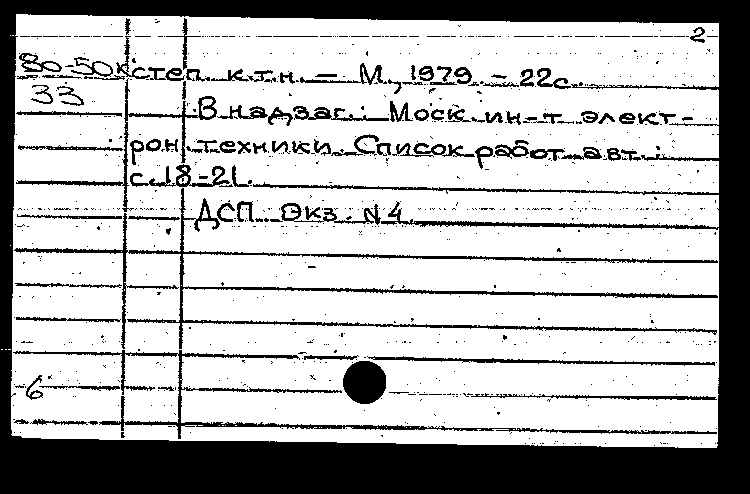 2
80-50к степ. к.т.н. — М., 1979. - 22с.
33
В надзаг.: Моск. ин-т элект-
рон. техники. Список работ авт.:
с. 18-21.
ДСП. Экз. N 4.
6